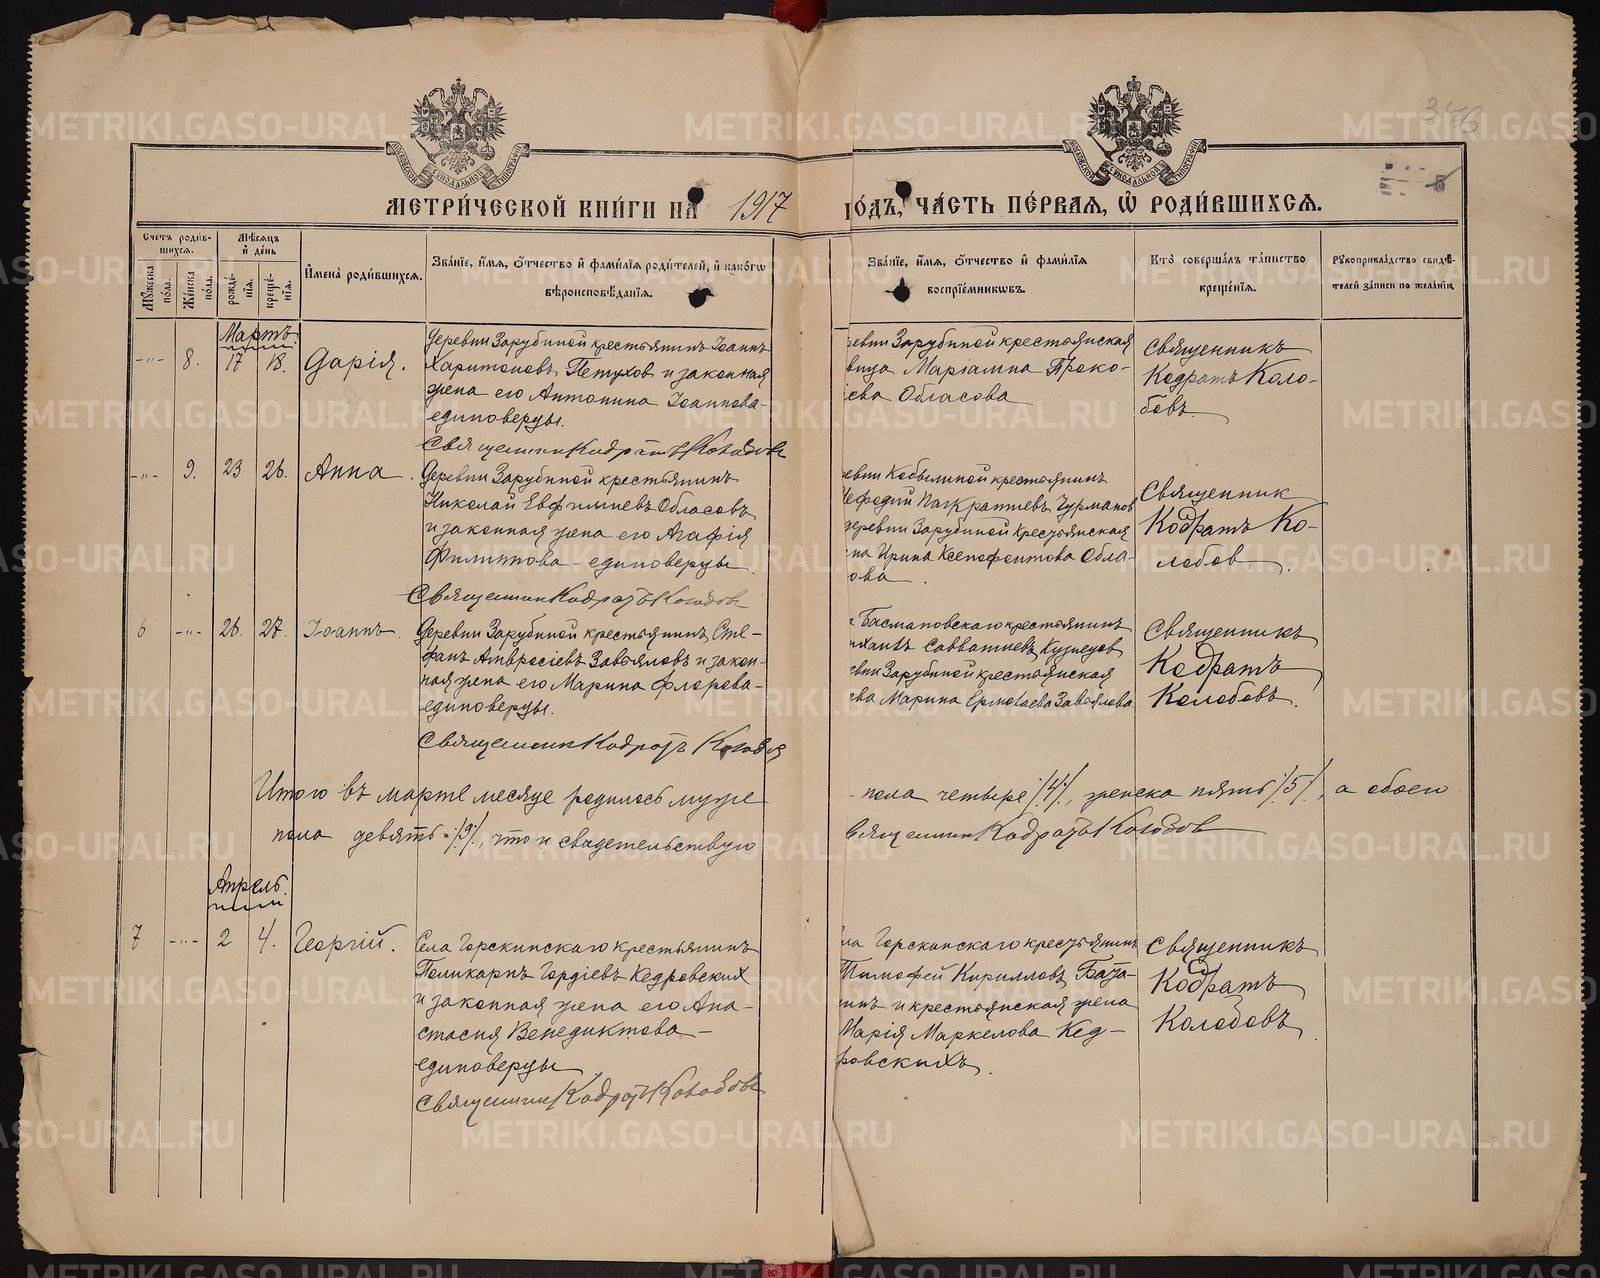 346
МОСКОВСКОЙ СѴНОДАЛЬНОЙ ТИПОГРАФІИ
МОСКОВСКОЙ СѴНОДАЛЬНОЙ ТИПОГРАФІИ
МЕТРИ́ЧЕСКОЙ КНИ́ГИ НА 1917
ГО́ДЪ, ЧА́СТЬ ПЕ́РВАѦ, Ѡ҆ РОДИ́ВШИХСѦ.
Счетъ роди́вшихсѧ.
Мꙋ́жеска по́ла.
Же́нска по́ла.
Мѣ́сѧцъ и҆ де́нь
рожде́нїѧ.
креще́нїѧ.
И҆мена̀ роди́вшихсѧ.
Зва́нїе, и҆́мѧ, ѻ҆́тчество и҆ фами́лїѧ роди́телей, и҆ како́гѡ
вѣроисповѣ́данїѧ.
Зва́нїе, и҆́мѧ, ѻ҆́тчество и҆ фами́лїѧ
воспрїе́мникѡвъ.
Кто̀ соверша́лъ та́инство
креще́нїѧ.
Рꙋкоприкла́дство свидѣ́-
телей за́писи по жела́нїю.
Мартъ
-"- 8. 17 18. Дарія.
Деревни Зарубиной крестьянинъ Іоаннъ
Харитоновъ Петухов и законная
жена его Антонина Іоаннова-
единоверцы.
Священник Кодратъ Колобовъ
ревни Зарубиной крестьянская
вица Маріамна Проко-
іева Обласова
Священникъ
Кодратъ Коло-
бовъ.
-"- 9. 23 26. Анна.
Деревни Зарубиной крестьянинъ
Николай Евфимиевъ Обласовъ
и законная жена его Агафія
Филиппова - единоверцы.
Священник Кодратъ Колобов
ревни Кобылиной крестьянинъ
Мефодий Панкратиевъ Чурманов
деревни Зарубиной крестьянская
на Ирина Ксенофонтова Обла-
ова.
Священник
Кодратъ Ко-
лобов.
6 -"- 26. 27. Іоаннъ.
Деревни Зарубиной крестьянинъ Сте-
фанъ Амвросіевъ Завьяловъ и закон-
ная жена его Марина Флорова-
единоверцы.
Священник Кодратъ Колобов
Басмановскаго крестьянинъ
Савватиевъ Кузнецов
евни Зарубиной крестьянская
ева Марина Ермолаева Завьялова
Священникъ
Кодратъ
Колобовъ.
Итого въ марте месяце родилось муже
пола четыре /4/, женска пять /5/, а обоего
пола девять /9/, что и свидетельствую
Священник Кодратъ Колобов
Апрель.
7 -"- 2 4. Георгій.
Села Горскинскаго крестьянинъ
Поликарпъ Гордіевъ Кедровских
и законная жена его Ана-
стасия Венедиктова-
единоверцы
Священник Кодратъ Колобовъ
ла Горскинскаго крестьянинъ
Тимофей Кирилловъ База-
инъ и крестьянская жена
Марія Маркелова Кед-
ровскихъ.
Священникъ
Кодратъ
Колобовъ.
METRIKI.GASO-URAL.RU